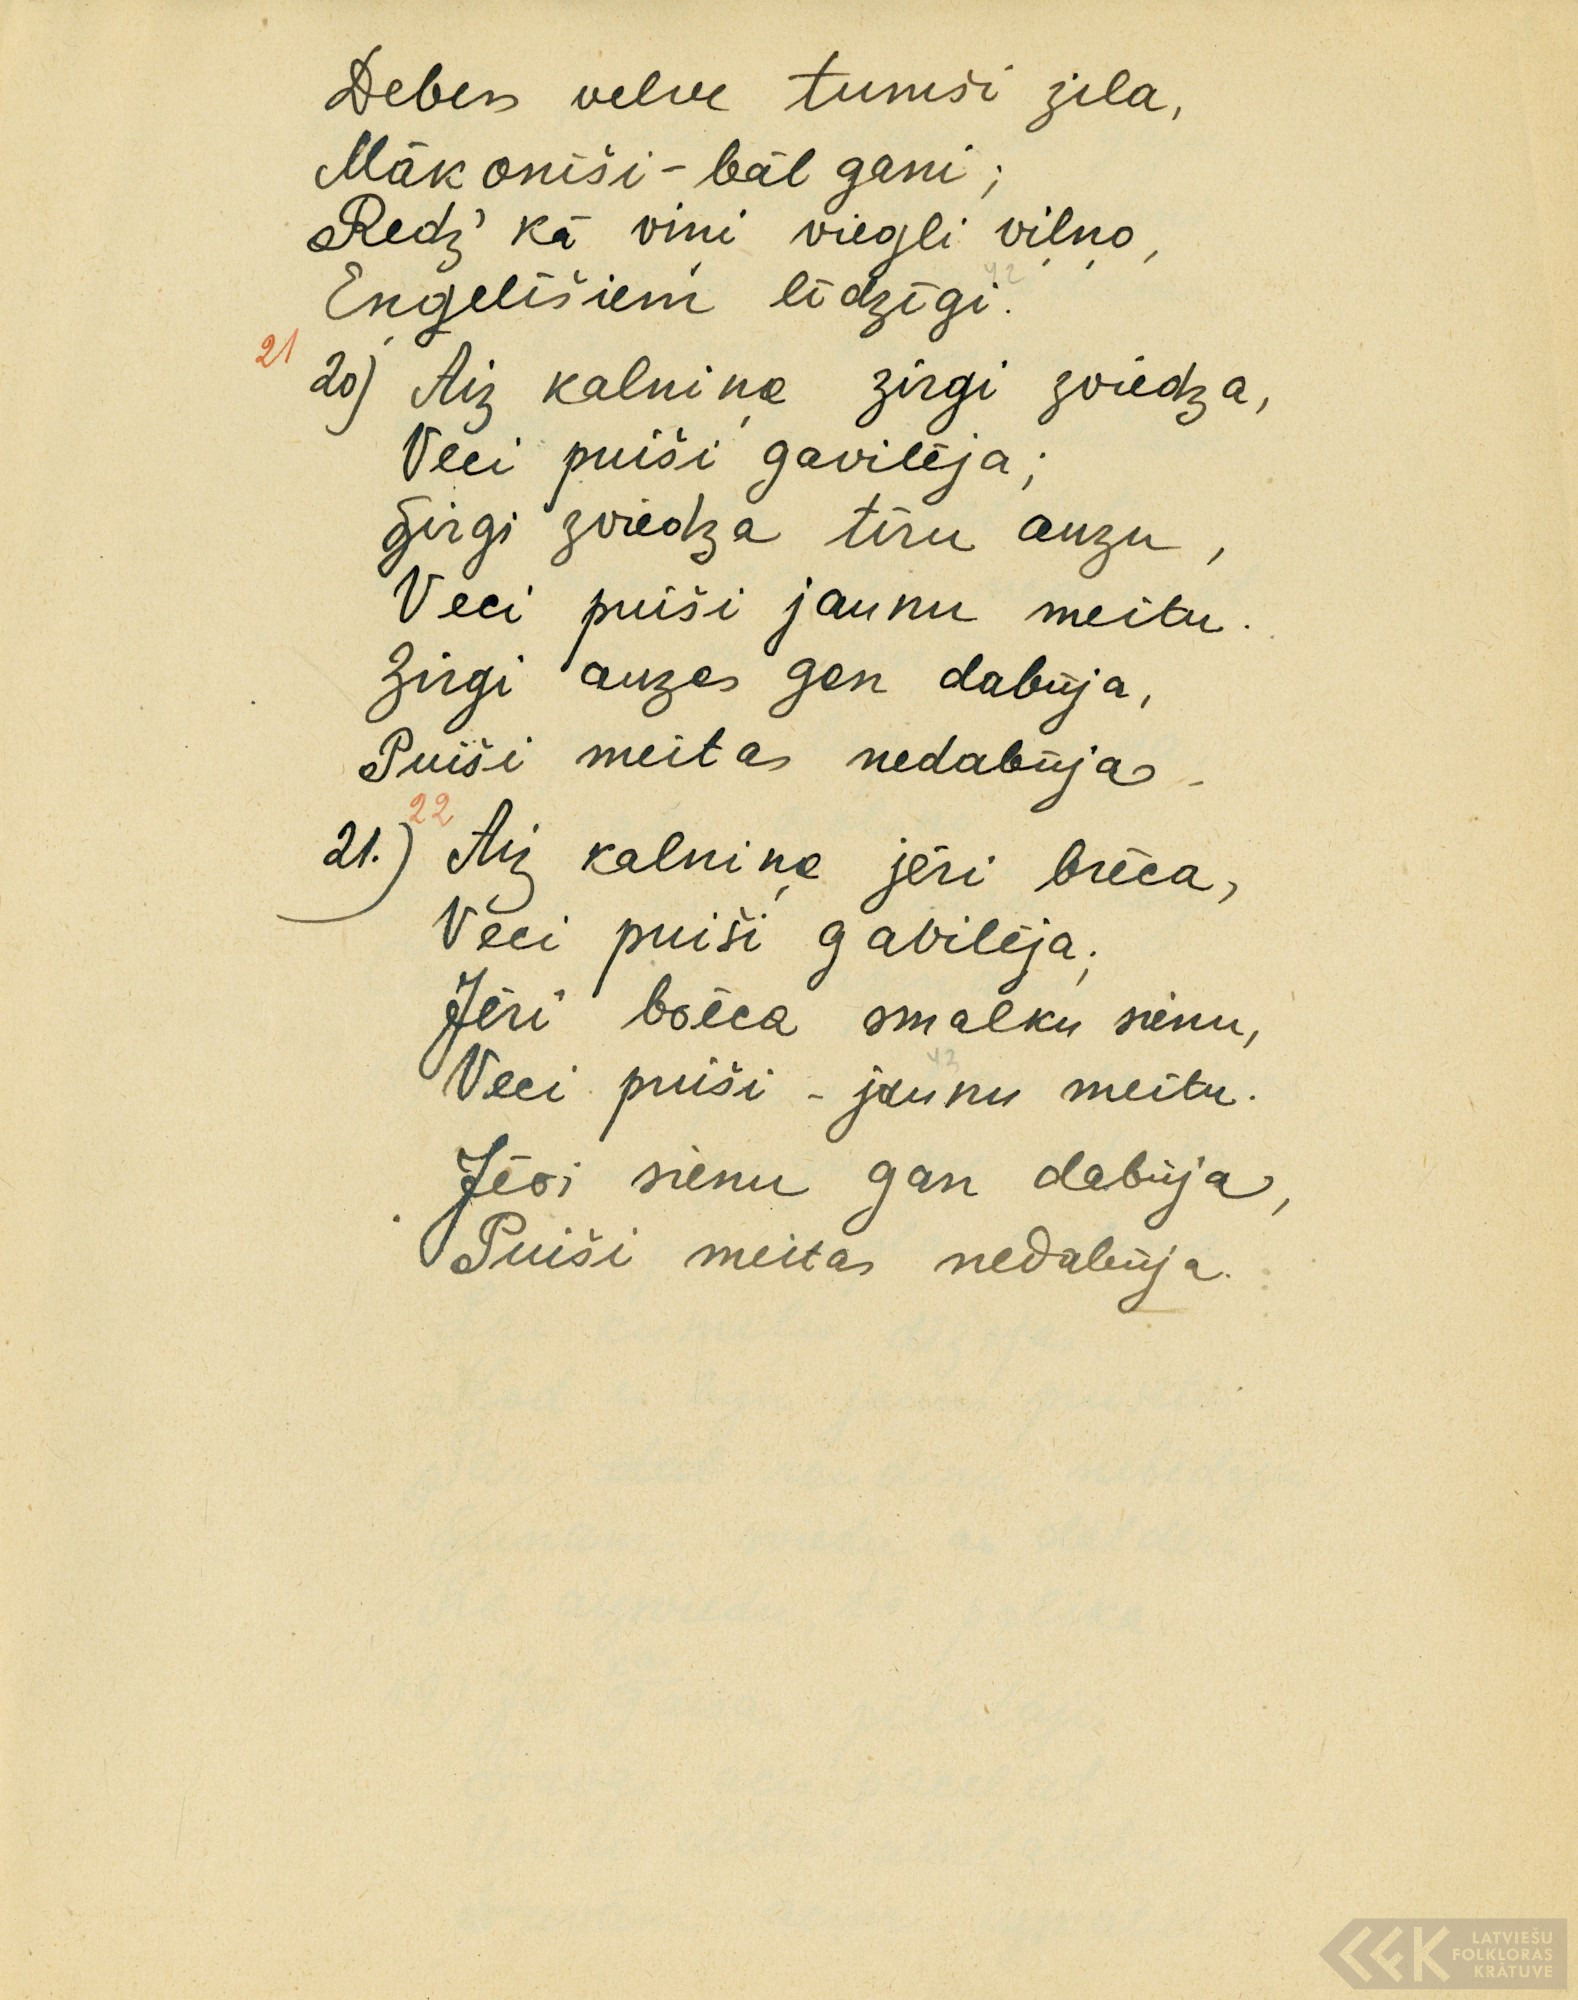 Debess velve tumši zila,
Mākonīši - bāl gani;
Redz' kā viņi viegli viļņo,
Eņģelīšiem līdzīgi.
21 20) Aiz kalniņa zirgi zviedza,
Veci puiši gavilēja;
Zirgi zviedza tīru auzu,
Veci puiši jaunu meitu.
Zirgi auzas gan dabūja,
Puiši meitas nedabūja.
22
21.) Aiz kalniņa jēri brēca,
Veci puiši gavilēja;
Jēri brēca smalku sienu,
Veci puiši - jaunu meitu.
Jēri sienu gan dabūja,
Puiši meitas nedabūja.
LATVIEŠU
FOLKLORAS
KRĀTUVE